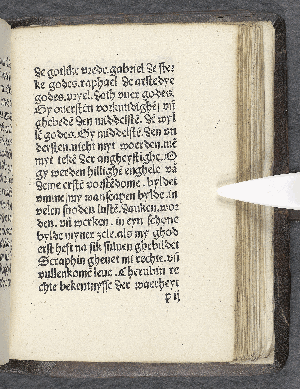 de gotlike vrede. gabriel de ster
ke godes. raphael de arstedye
godes. vryel. dath vuer godes.
Gy ouersten vorkundighẽ vñ
ghebedẽ den middelstẽ. de wyl
lē godes. Gy middelstē. den vn
dersten. nicht myt woerden. mẽ
myt tekē der
gy werden hillighē enghele vā
deme erstē vorstēdome. byldet
vmme my wanscapen bylde. in
velen snoden lustē. danken. wor
den. vñ werken. in eyn schone
bylde myner zele. als my ghod
erst heft na sik suluen ghebildet
Seraphin gheuet mi rechte. vñ
vullenkome leue. Cherubin re
chte bekentnysse der waerheyt
p ij